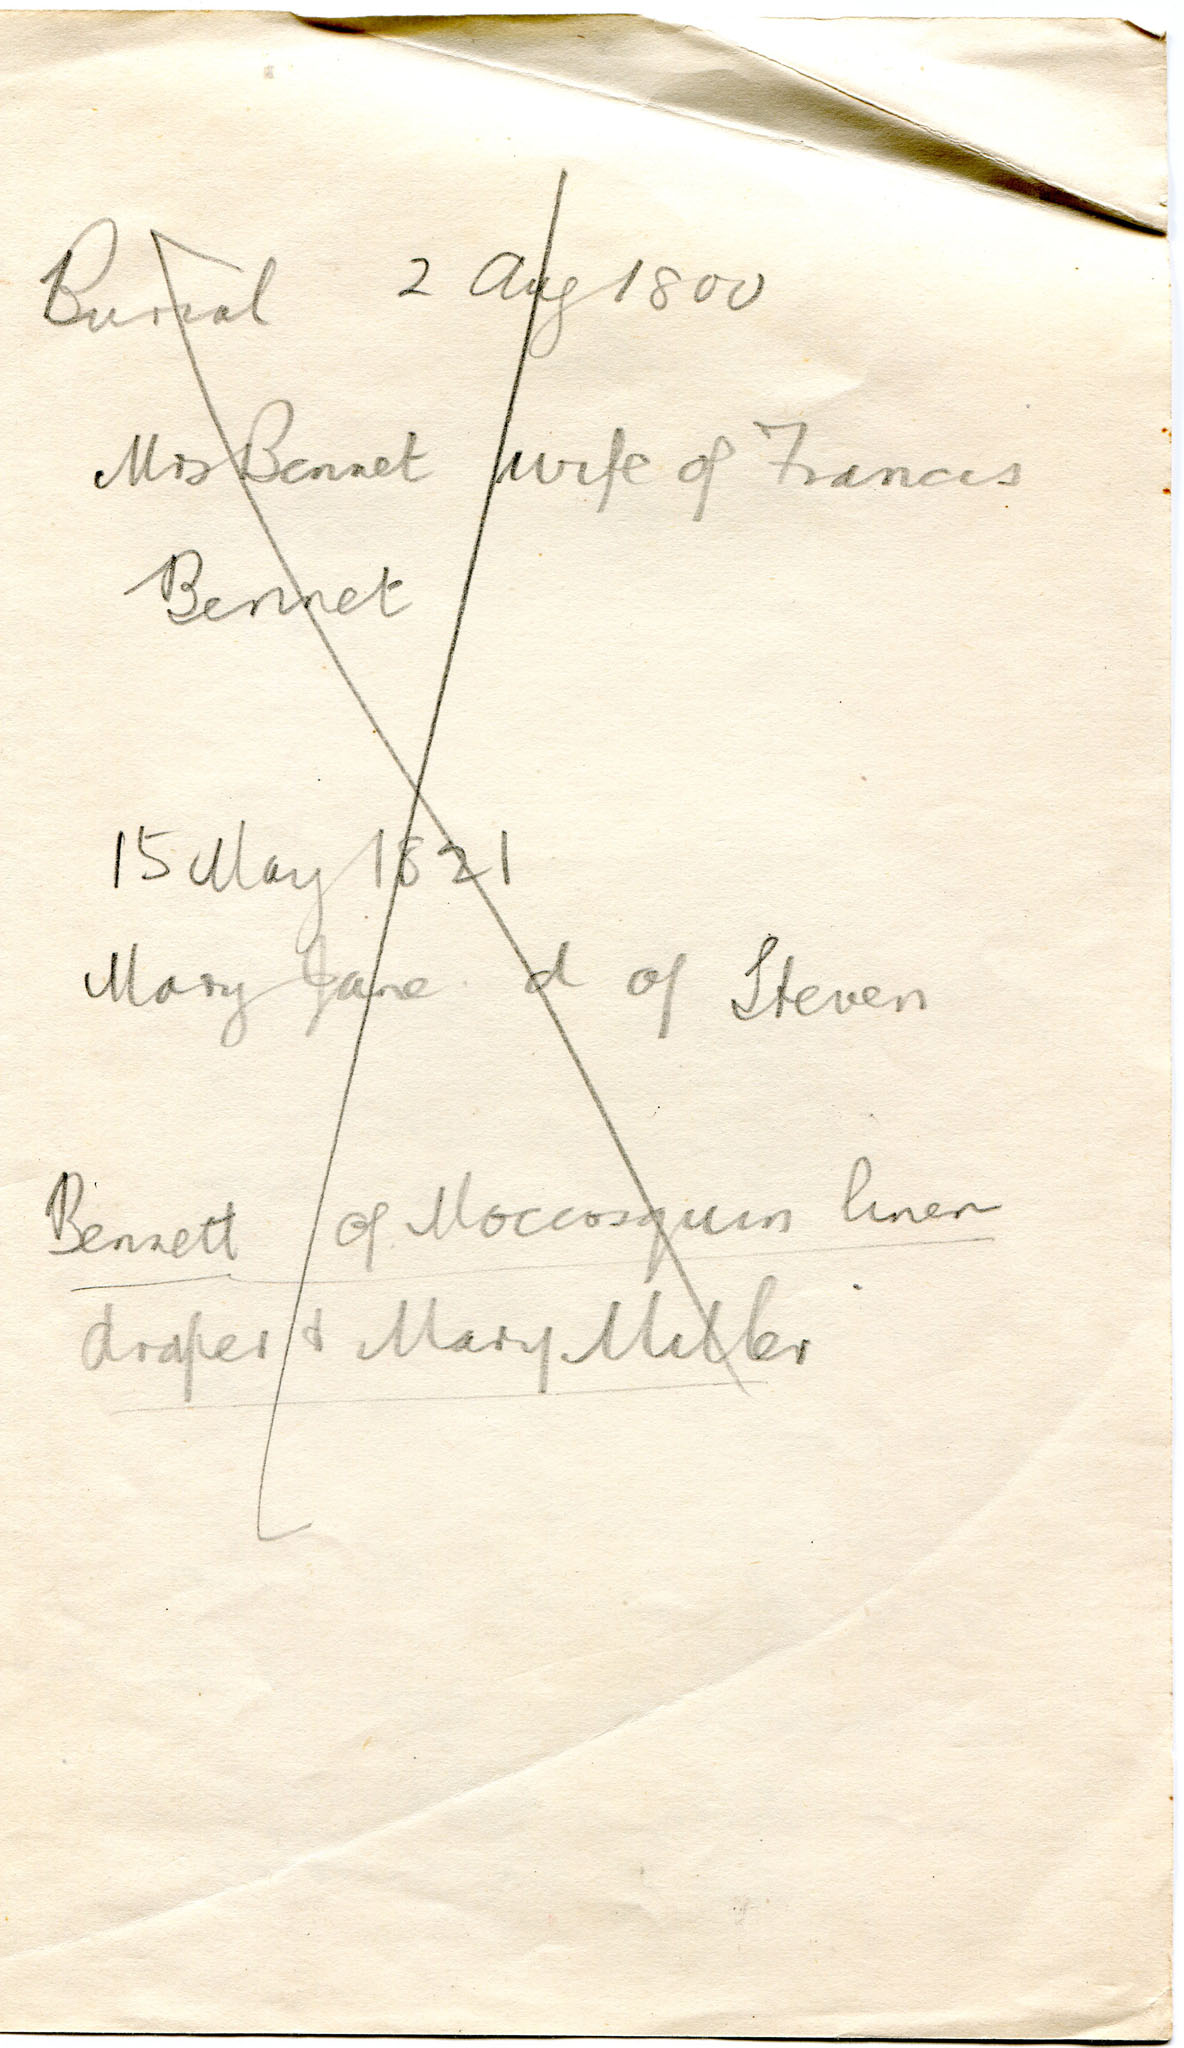 Burial 2 Aug 1800
Mrs Bennet wife of Francis
Bennet
15 May 1821
Mary Jane d of Steven
Bennett of Moccosquin linen
draper & Mary Miller